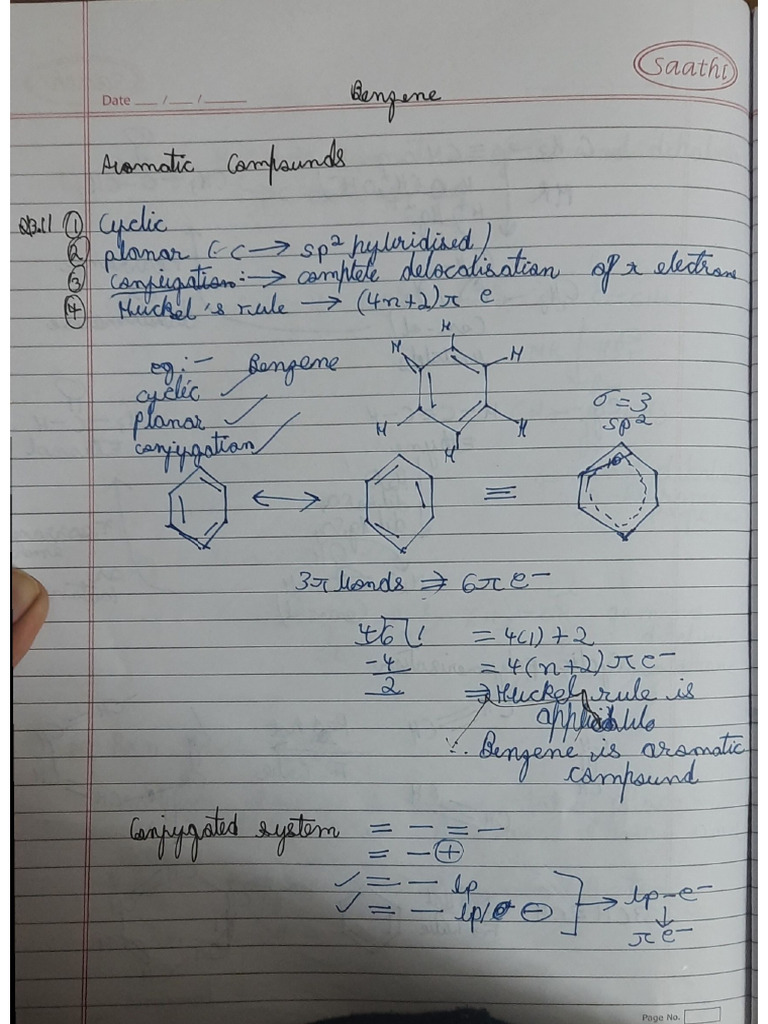 Saathi
Date __/__/____
Benzene
Aromatic Compounds
① Cyclic
② planar (-C → sp² hybridised)
③ conjugation:→ complete delocalisation of π electrons
④ Huckel's rule → (4n+2)π e
eg:- Benzene
cyclic ✓
planar ✓
conjugation ✓
H
H H
H H
H
σ=3
sp²
↔ ≡
3π bonds ⇒ 6π e⁻
4)6(1 = 4(1)+2
-4 = 4(n+2)πe⁻
2 ⇒ Huckel rule is
applicable
∴ Benzene is aromatic
compound
Conjugated system = - = -
= - ⊕
✓ = - lp
✓ = - lp/ ⊖
→ lp-e⁻
↓
πe⁻
Page No.